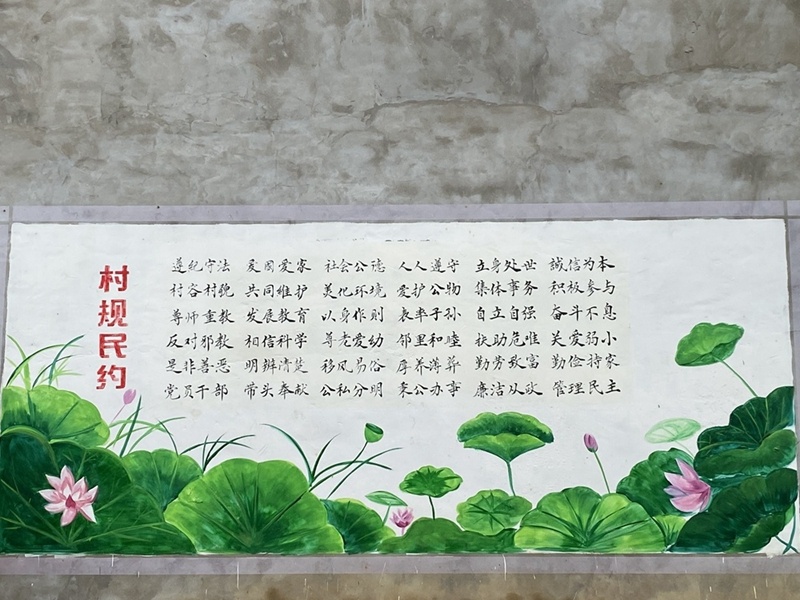 村规民约
遵纪守法 爱国爱家 社会公德 人人遵守 立身处世 誠信为本
村容村貌 共同维护 美化环境 爱护公物 集体事务 积极参与
尊师重教 发展教育 以身作则 表率子孙 自立自强 奋斗不息
反对邪教 相信科学 尊老爱幼 邻里和睦 扶助危难 关爱弱小
是非善恶 明辨清楚 移风易俗 厚养薄葬 勤劳致富 勤俭持家
党员干部 带头奉献 公私分明 秉公办事 廉洁从政 管理民主